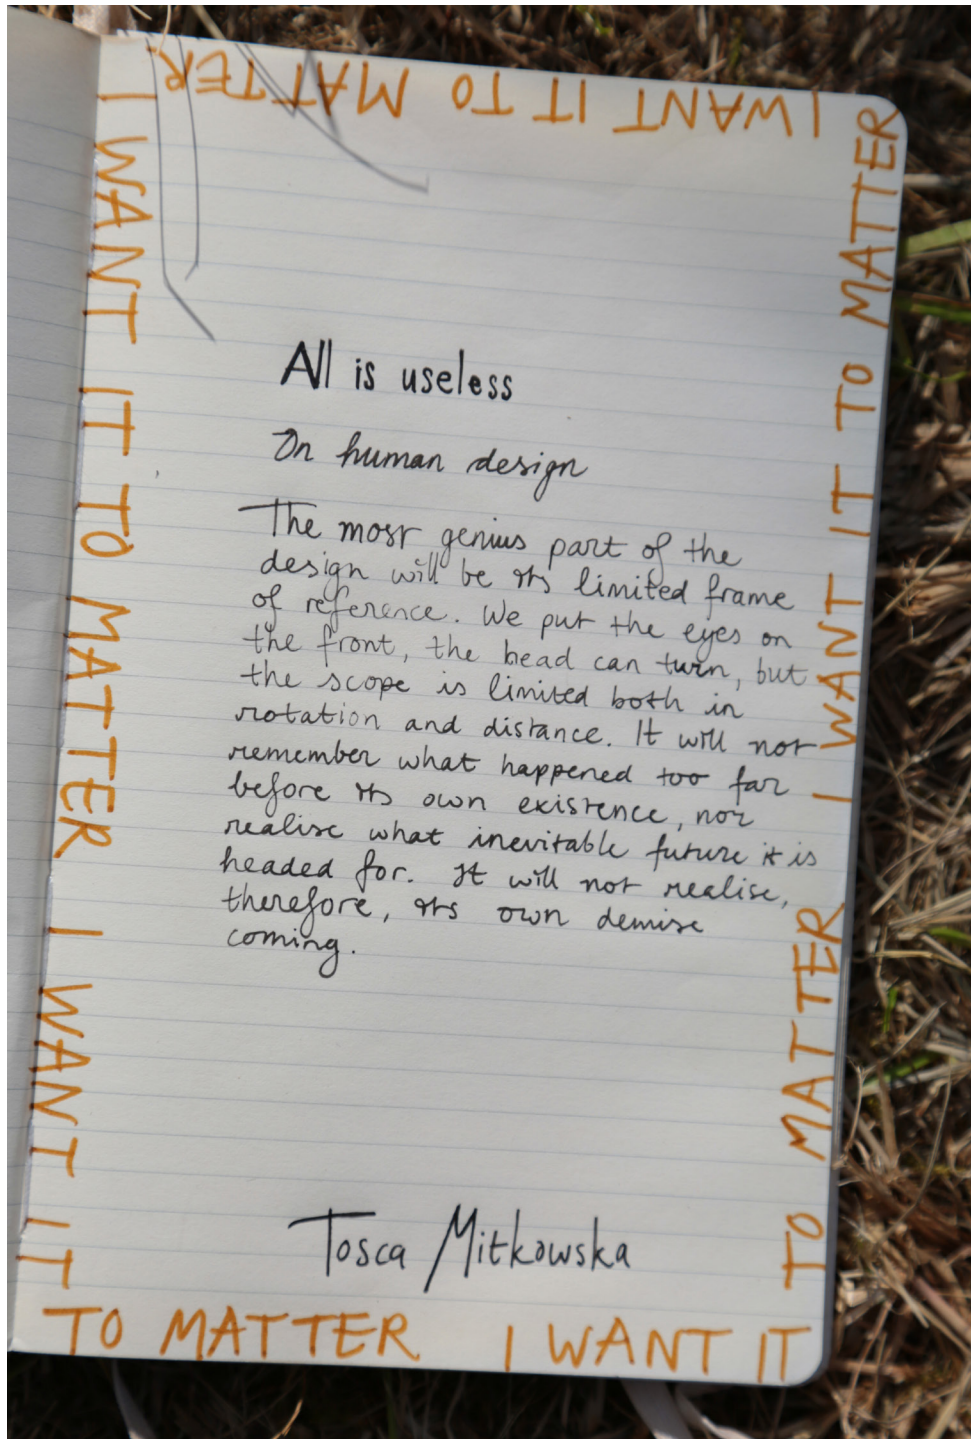 I WANT IT TO MATTER
I WANT IT TO MATTER I WANT IT
TO MATTER I WANT IT
TO MATTER I WANT IT TO MATTER
All is useless
On human design
The most genius part of the
design will be its limited frame
of reference. We put the eyes on
the front, the head can turn, but
the scope is limited both in
rotation and distance. It will not
remember what happened too far
before its own existence, nor
realise what inevitable future it is
headed for. It will not realise,
therefore, its own demise
coming.
Tosca Mitkowska